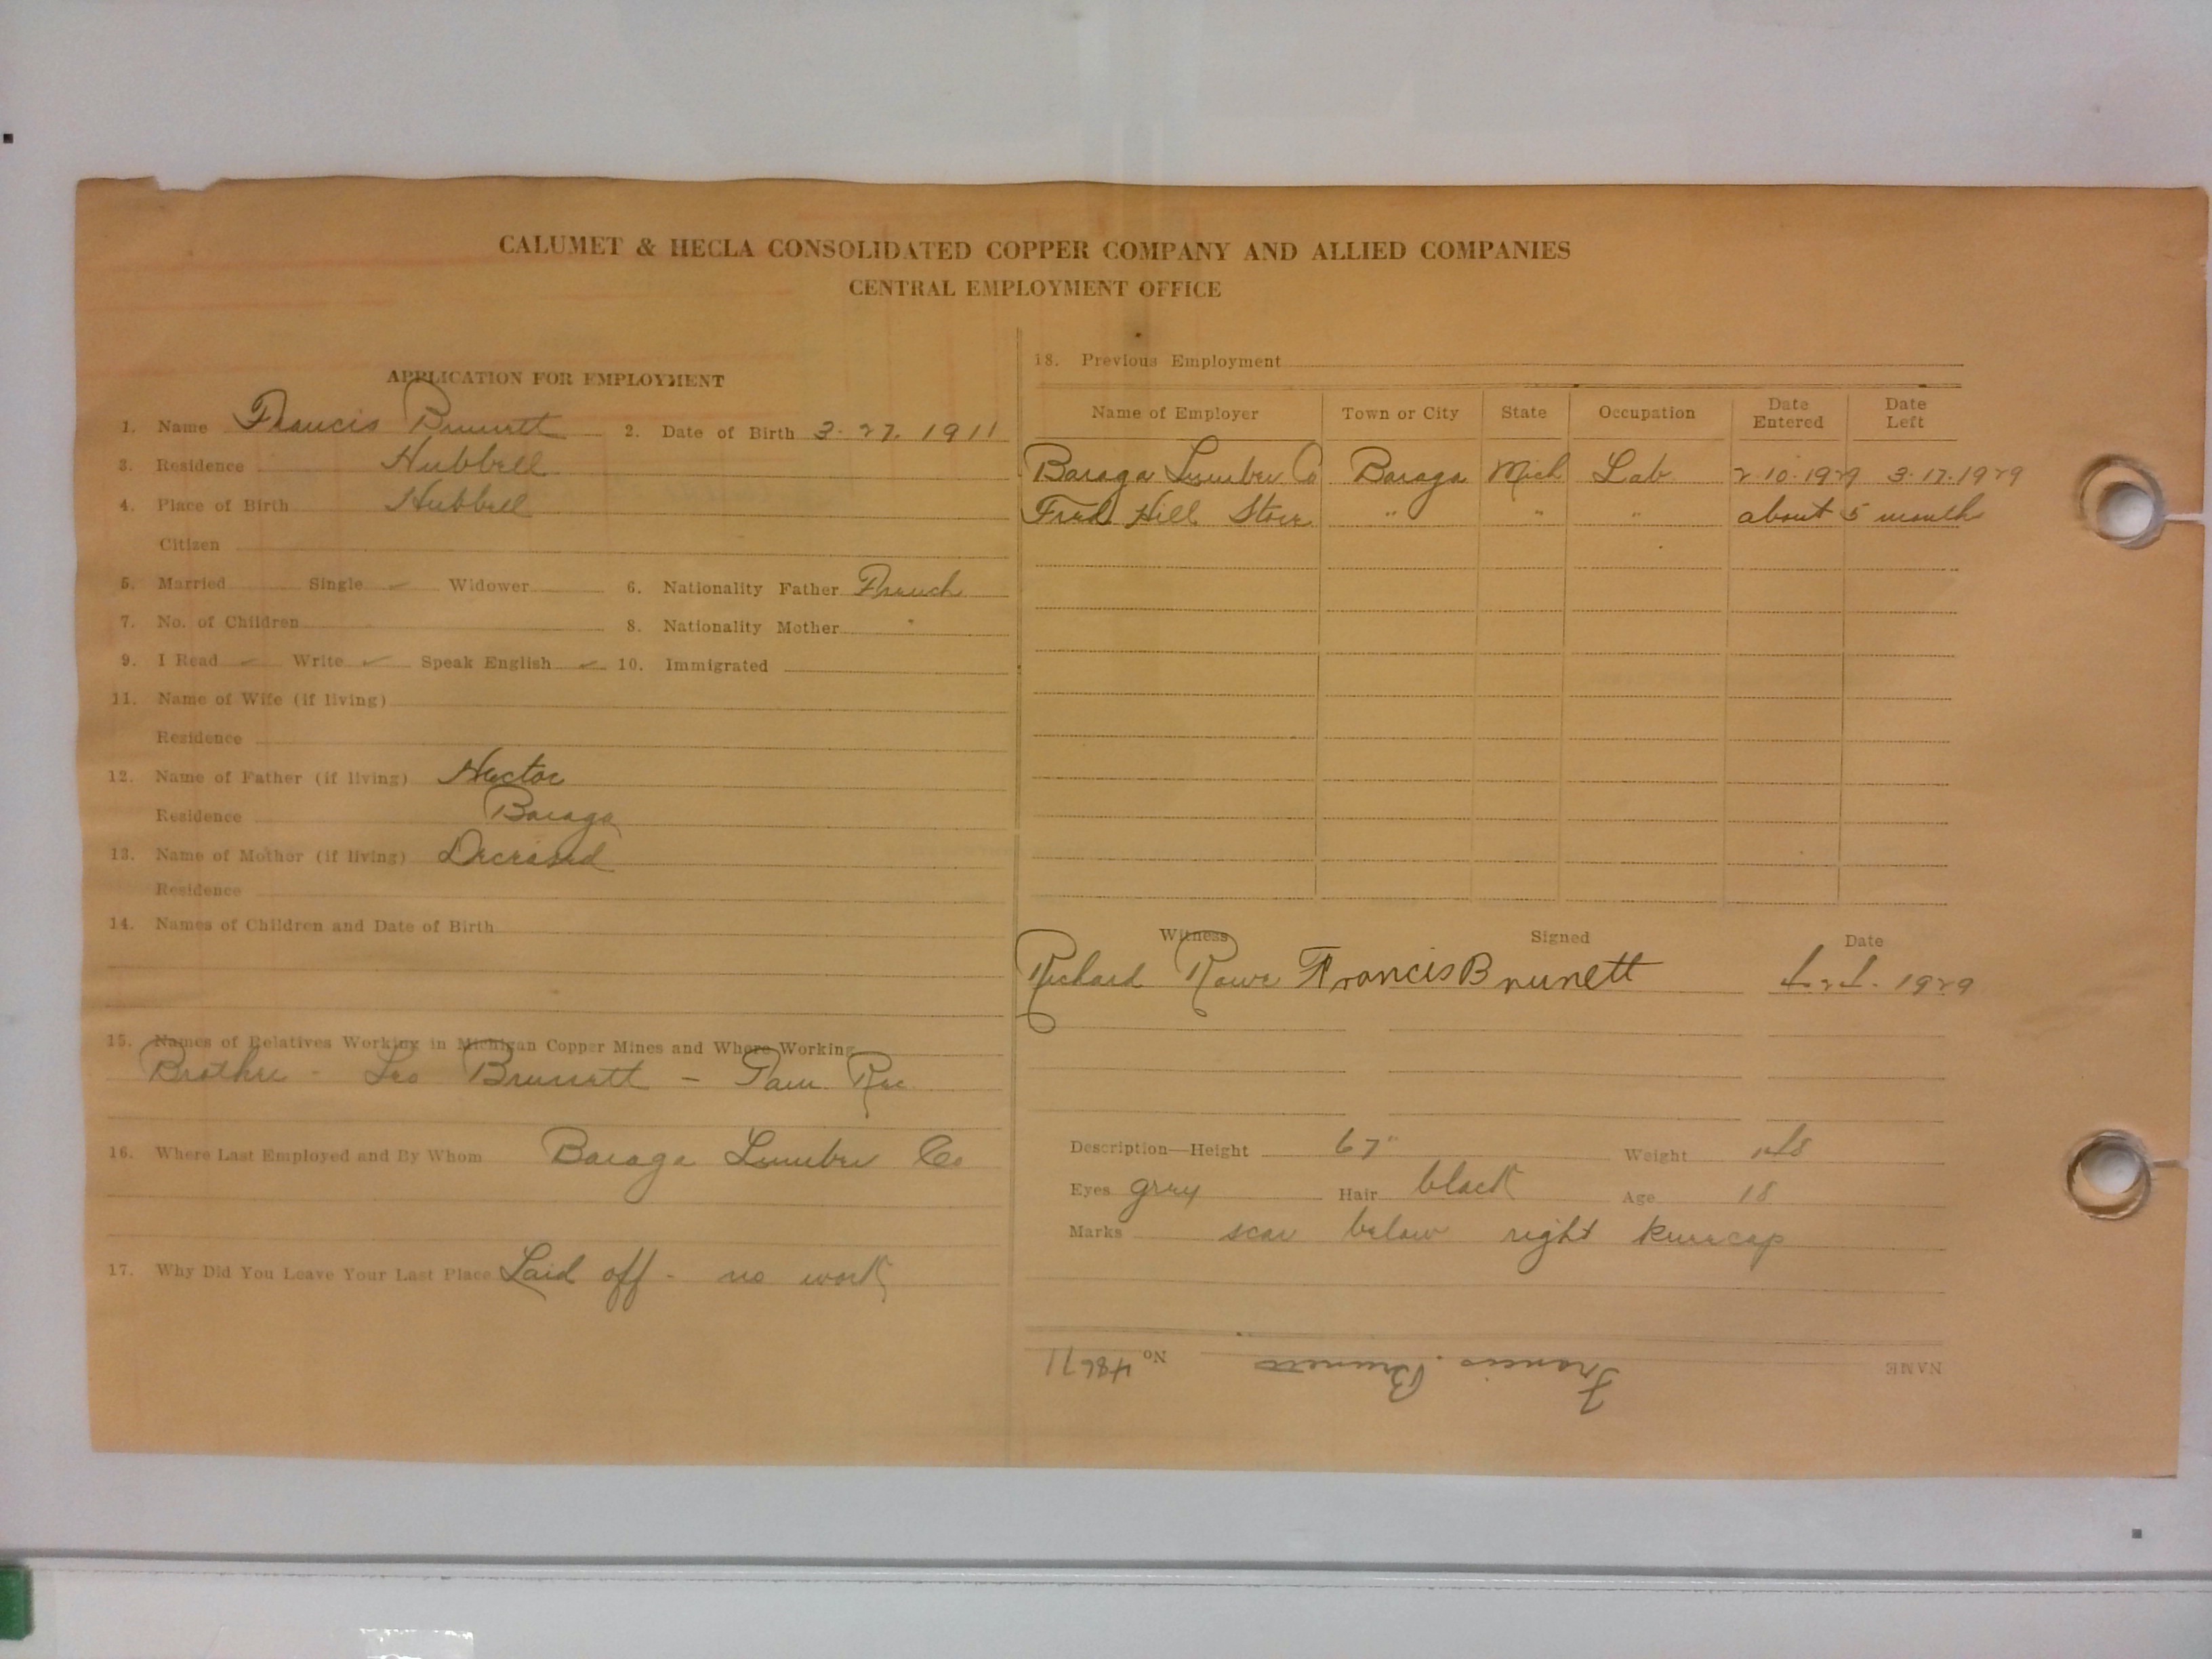 CALUMET & HECLA CONSOLIDATED COPPER COMPANY AND ALLIED COMPANIES
CENTRAL EMPLOYMENT OFFICE
APPLICATION FOR EMPLOYMENT
1. Name Francis Brunett 2. Date of Birth 3-27-1911
3. Residence Hubbell
4. Place of Birth Hubbell
Citizen
5. Married Single ✓ Widower 6. Nationality Father French
7. No. of Children 8. Nationality Mother "
9. I Read ✓ Write ✓ Speak English ✓ 10. Immigrated
11. Name of Wife (if living)
Residence
12. Name of Father (if living) Hector
Residence Baraga
13. Name of Mother (if living) Deceased
Residence
14. Names of Children and Date of Birth
15. Names of Relatives Working in Michigan Copper Mines and Where Working
Brother - Leo Brunett - Tam. Rec
16. Where Last Employed and By Whom Baraga Lumber Co
17. Why Did You Leave Your Last Place Laid off - no work
18. Previous Employment
Name of Employer Town or City State Occupation Date Entered Date Left
Baraga Lumber Co Baraga Mich Lab 2-10-1929 3-17-1929
Fred Hill Store " " " about 5 month
Witness Signed Date
Richard Rowe Francis Brunett 1929
Description—Height 67" Weight 148
Eyes grey Hair black Age 18
Marks scar below right kneecap
NAME Francis Brunett No 48671